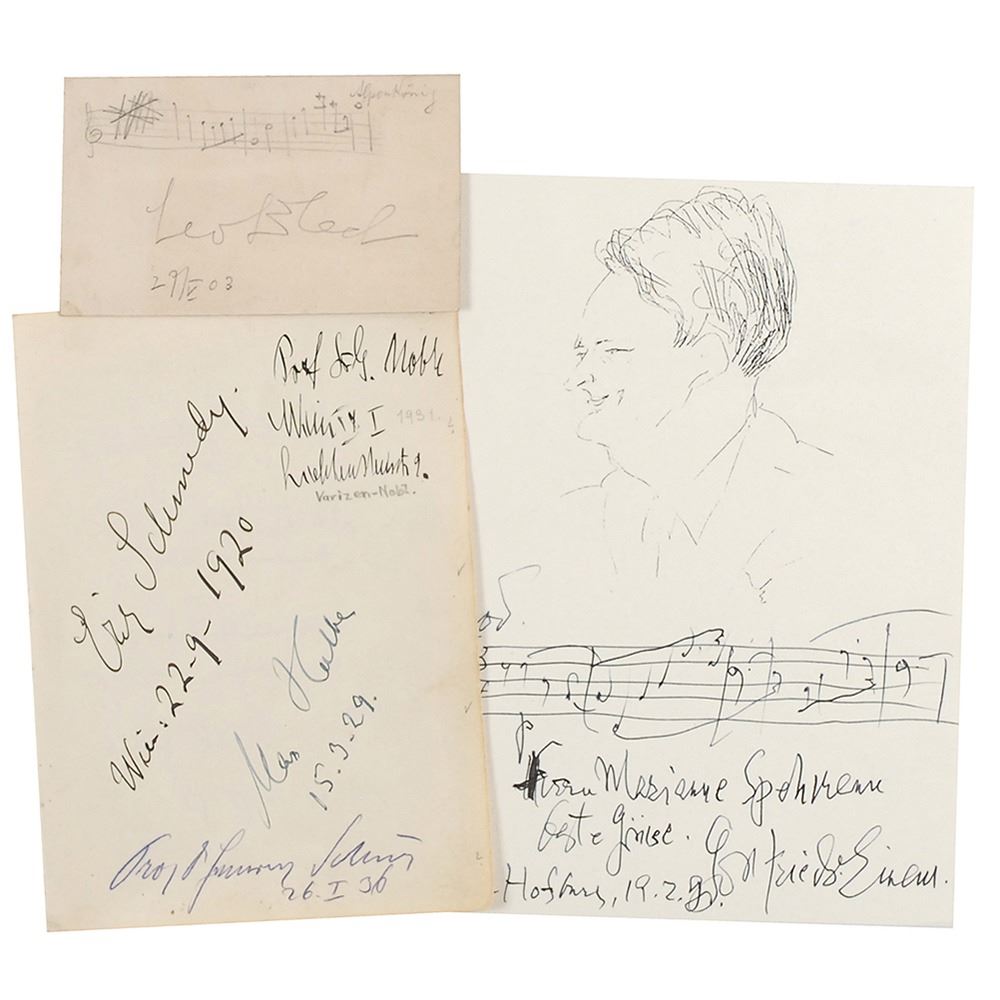 Alpenkönig
Leo Blech
29/V 03
Prof Dr G. Nobl
Wien IX I 1931.
Varizen-Nobl.
Eric Schmedes
Wien: 22-9-1920
Max Halbe
15.3.29.
Prof Dr
26.I 36
p
Frau Marianne Spehrenn
beste Grüsse. Gottfried v. Einem.
Hofburg, 19.2.